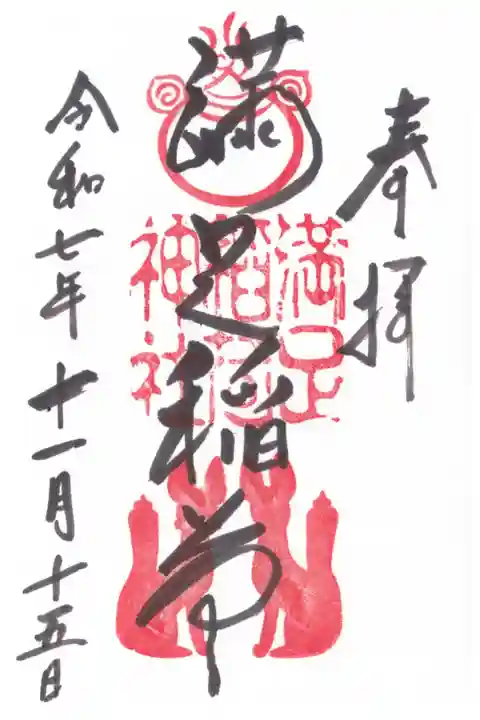 奉拝
満足稲荷
満足
稲荷
神社
令和七年十一月十五日